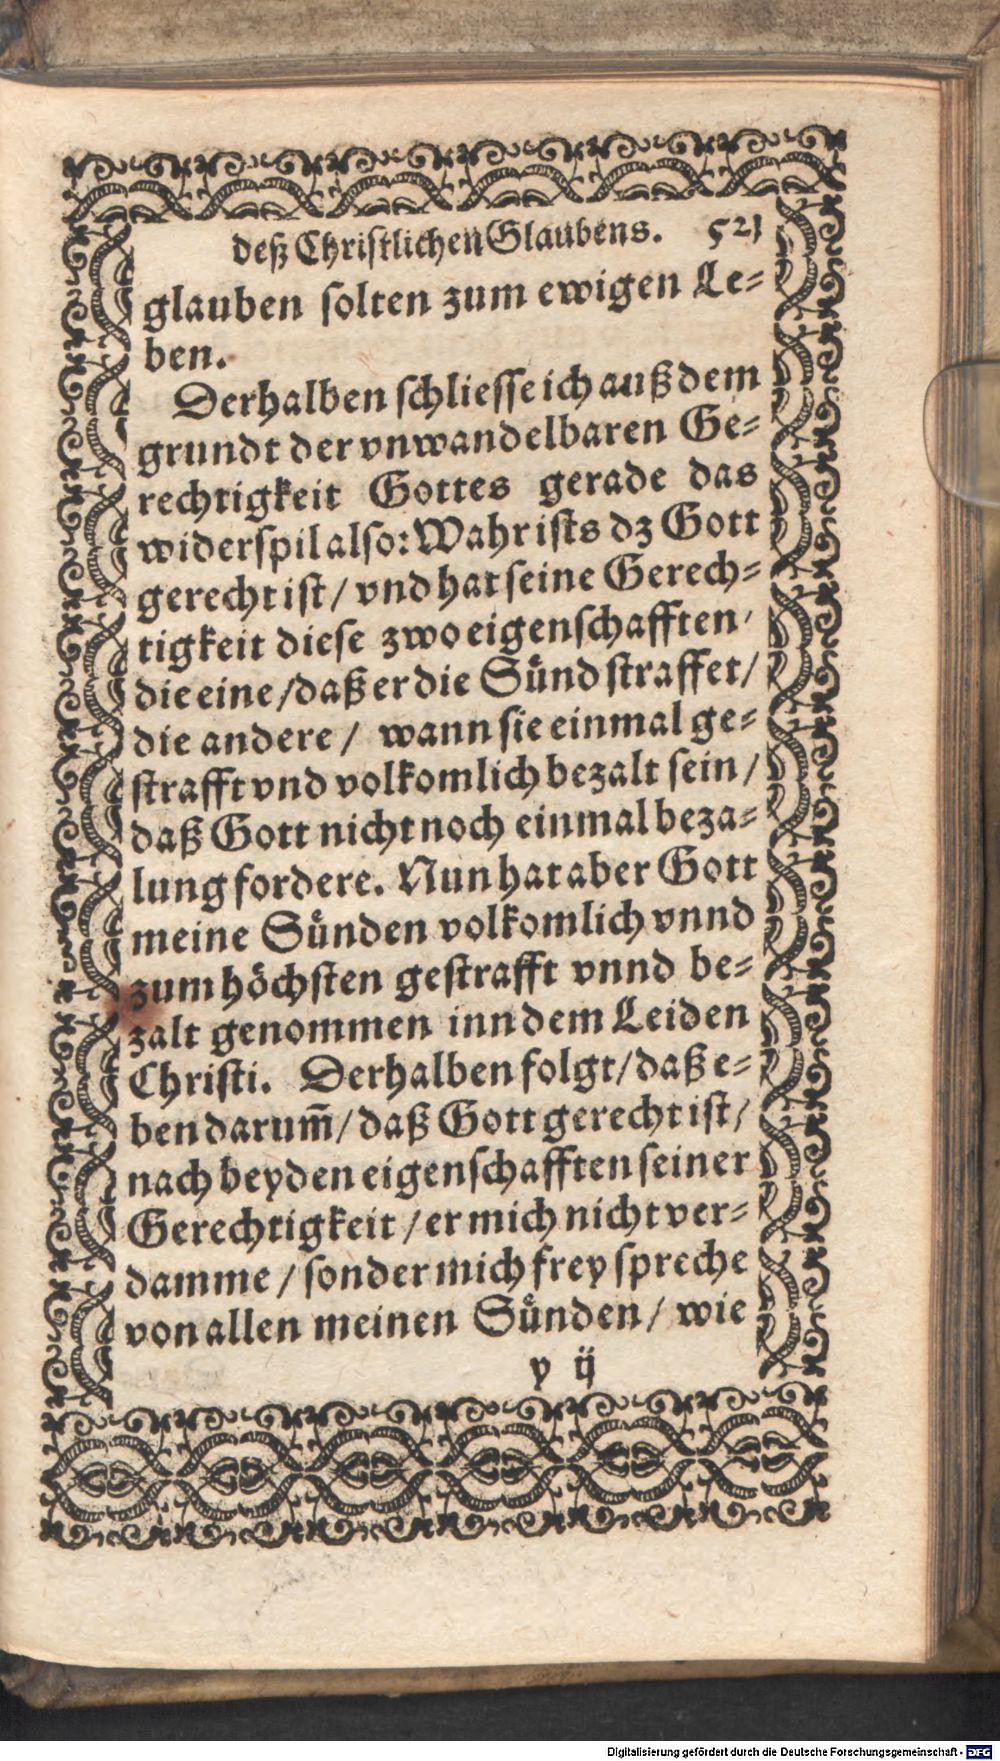 deß Christlichen Glaubens. 521
glauben solten zum ewigen Le=
ben.
Derhalben schliesse ich auß dem
grundt der vnwandelbaren Ge=
rechtigkeit Gottes gerade das
widerspil also: Wahr ists dz Gott
gerecht ist / vnd hat seine Gerech=
tigkeit diese zwo eigenschafften /
die eine / daß er die Sünd straffet /
die andere / wann sie einmal ge=
strafft vnd volkomlich bezalt sein /
daß Gott nicht noch einmal beza=
lung fordere. Nun hat aber Gott
meine Sünden volkomlich vnnd
zum höchsten gestrafft vnnd be=
zalt genommen inn dem Leiden
Christi. Derhalben folgt / daß e=
ben darum̄ / daß Gott gerecht ist /
nach beyden eigenschafften seiner
Gerechtigkeit / er mich nicht ver=
damme / sonder mich frey spreche
von allen meinen Sünden / wie
y ij
Digitalisierung gefördert durch die Deutsche Forschungsgemeinschaft - DFG